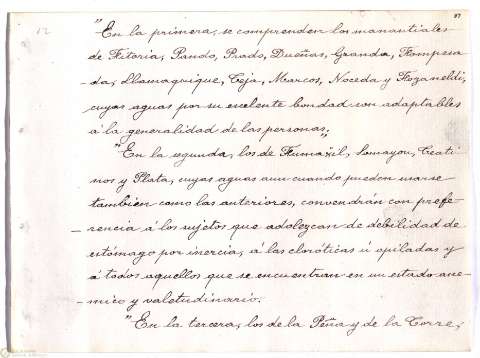 87
12
"En la primera, se comprenden los manantiales
de Fitoria, Pando, Prado, Dueñas, Granda, Rompesa-
da, Llamaquique, Teja, Marcos, Noceda y Rozaneldi,
cuyas aguas por su excelente bondad son adaptables
á la generalidad de las personas,,
"En la segunda, los de Fumaxil, Lomayou, Teati-
nos y Plata, cuyas aguas aun cuando pueden usarse
tambien como las anteriores, convendrán con prefe-
rencia á los sujetos que adolezcan de debilidad de
estómago por inercia, á las cloróticas ú opiladas y
á todos aquellos que se encuentran en un estado ane-
mico y valetudinario.
"En la tercera, los de la Peña y de la Torre,